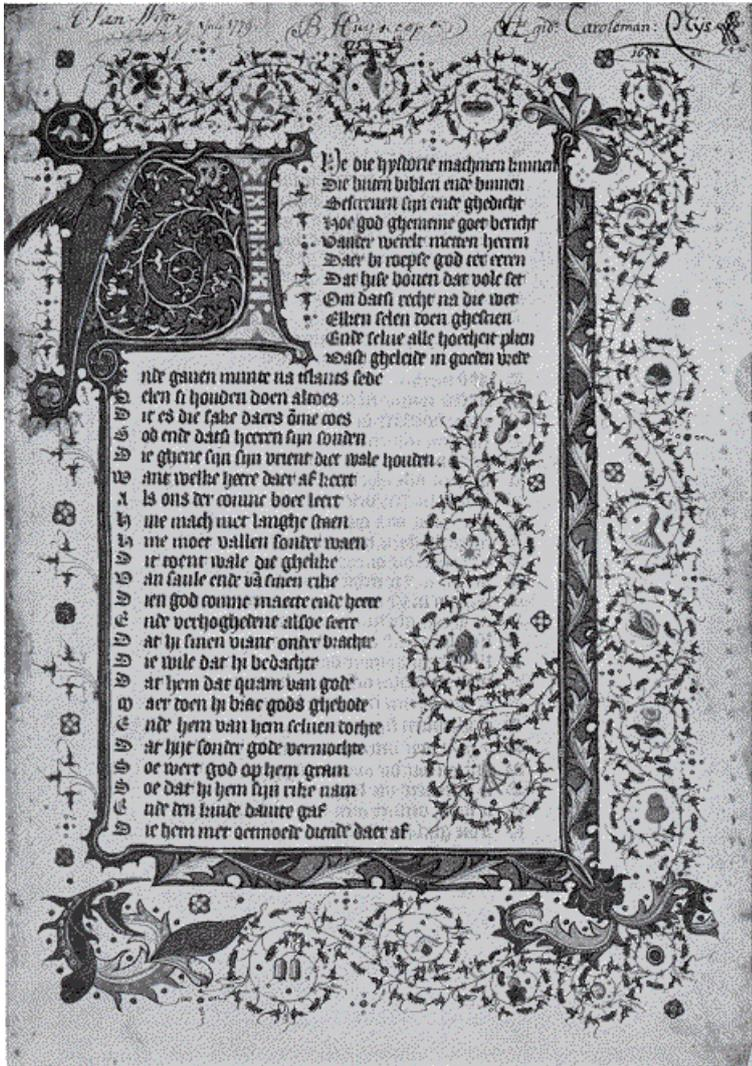 H. Van Wijn
July 1779
B. Huydecoper
Ægid: Caroleman: Nijs
16
A
lle die hystorie machmen kinnen
Die buten biblen ende binnen
Bescreuen sijn ende ghedicht
Hoe god ghemeine goet bericht
Vander werelt metten heeren
Daer bi roepse god ter eeren
Dat hise bouen dat volc set
Om datsi recht na die wet
Elken selen doen gheschien
Ende selue alle hoecheit plien
Vaste gheleide in goeden vrede
E nde gauen munte na tslants sede
S elen si houden doen altoes
D it es die sake daers ōme coes
G od ende datsi heeren sijn souden
D ie ghene sijn sijn vrient diet wale houden
W ant welke heere daer af keert
A ls ons der conincboec leert
H ine mach niet langhe staen
H ine moet vallen sonder waen
D it toent wale die ghelike
V an saule ende vā sinen rike
D ien god coninc maecte ende heere
E nde verhoghedene alsoe seere
D at hi sinen viant onder brachte
D ie wile dat hi bedachte
D at hem dat quam van gode
M aer doen hi brac gods ghebode
E nde hem van hem seluen dochte
D at hijt sonder gode vermochte
S oe wert god op hem gram
S oe dat hi hem sijn rike nam
E nde den kinde dauite gaf
D ie hem met oetmoede diende daer af